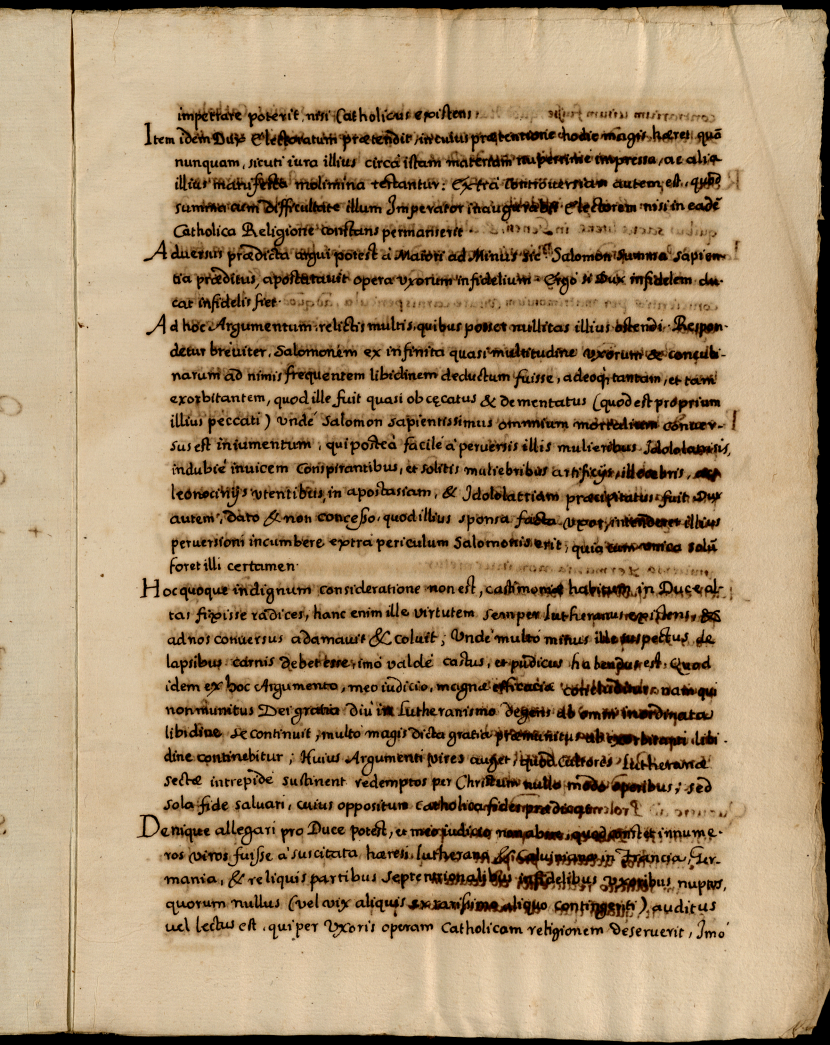 impetrare poterit, nisi Catholicus existens.
Item idem Dux Electoratum prætendit, in cuius prætentione hodie magis hæret quā
nunquam, sicuti iura illius circa istam materiam nuperrime impressa, ac aliæ
illius manifesta molimina testantur. Extra controversiam autem est, quod
summa cum difficultate illum Imperator inaugurabit Electorem nisi in eadē
Catholica Religione constans permanserit.
Adversus prædicta argui potest à Maiori ad Minus sic. Salomon summa sapien-
tia præditus, apostatavit opera uxorum infidelium. Ergo si Dux infidelem du-
cat infidelis fiet.
Ad hoc Argumentum, relictis multis, quibus posset nullitas illius ostendi. Respon-
detur breviter, Salomonem ex infinita quasi multitudine uxorum & concubi-
narum ad nimis frequentem libidinem deductum fuisse, adeoq; tantam, et tam
exorbitantem, quod ille fuit quasi obcęcatus & dementatus (quod est proprium
illius peccati) unde Salomon sapientissimus omnium mortalium conver-
sus est in iumentum, qui postea facile à perversis illis mulieribus Idololatris,
indubie invicem conspirantibus, et solitis muliebribus artificijs, illecebris, et
leonocinijs utentibus, in apostasiam, & Idololatriam præcipitatus fuit. Dux
autem, dato & non concesso, quod illius sponsa facta uxor, intenderet illius
perversioni incumbere extra periculum Salomonis erit, quia cum unica solū
foret illi certamen.
Hoc quoque indignum consideratione non est, castimoniæ habitum in Duce al-
tas fixisse radices, hanc enim ille virtutem semper Lutheranus existens, &
ad nos conversus adamavit & coluit; Unde multo minus ille suspectus de
lapsibus carnis debet esse, imo valde castus, et pudicus habendus est. Quod
idem ex hoc Argumento, meo iudicio, magna efficacia concluditur, nam qui
non munitus Dei gratia diu in Lutheranismo degens ab omni inordinata
libidine se continuit, multo magis dicta gratia præmunitus ab libi-
dine continebitur; Huius Argumenti vires auget, quod cultores Lutheranæ
sectæ intrepide sustinent redemptos per Christum nullo modo operibus, sed
sola fide salvari, cuius oppositum catholica fides
Denique allegari pro Duce potest, et meo iudicio innume-
ros viros fuisse à suscitata hæresi Lutherana & Calviniana in Francia, Ger-
mania, & reliquis partibus Septentrionalibus infidelibus uxoribus nuptos,
quorum nullus (vel vix aliquis ex rarissimo aliquo contingenti) auditus
vel lectus est, qui per Uxoris operam Catholicam religionem deseruerit, Imo